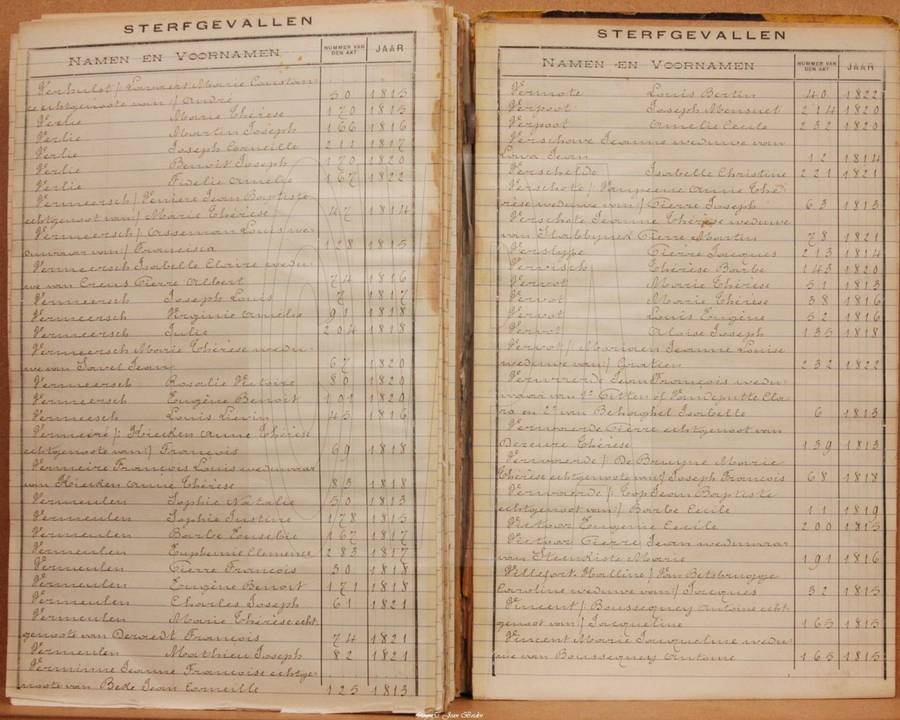 STERFGEVALLEN
NAMEN EN VOORNAMEN NUMMER VAN DEN AKT JAAR
Verhulst / Lauwers Marie Constan
ce echtgenoote van / André 50 1815
Verlie Marie Thérèse 170 1815
Verlie Martin Joseph 166 1816
Verlie Joseph Corneille 211 1817
Verlie Benoit Joseph 170 1820
Verlie Fidelie Amelie 167 1822
Vermeersch / Veniere Jean Baptiste
echtgenoot van / Marie Thérèse 47 1814
Vermeersch / Asseman Louis / we
duwaar van / Francisca 128 1815
Vermeersch Isabelle Claire wedu
we van Creus Pierre Albert 74 1816
Vermeersch Joseph Louis 7 1817
Vermeersch Virginie Amelie 91 1818
Vermeersch Julie 204 1818
Vermeersch Marie Thérèse wedu
we van Javel Jean 67 1820
Vermeersch Rosalie Victoire 80 1820
Vermeersch Eugène Benoit 191 1820
Vermeesch Louis Lievin 45 1816
Vermeire / Kieeken Anne Thérèse
echtgenoote van / François 69 1818
Vermeire François Louis weduwaar
van Kieeken Anne Thérèse 83 1818
Vermeulen Sophie Natalie 50 1813
Vermeulen Sophie Justine 178 1815
Vermeulen Barbe Eusebie 167 1817
Vermeulen Euphemie Clemence 283 1817
Vermeulen Pierre François 30 1818
Vermeulen Eugène Benoit 171 1818
Vermeulen Charles Joseph 61 1821
Vermeulen Marie Thérèse echt
genoote van Deraedt François 74 1821
Vermeulen Mathieu Joseph 82 1821
Verminne Jeanne Françoise echtge
noote van Bede Jean Corneille 125 1813
STERFGEVALLEN
NAMEN EN VOORNAMEN NUMMER VAN DEN AKT JAAR
Vermote Louis Bertin 40 1822
Verpoot Joseph Mensuet 214 1820
Verpoot Amelie Cecile 232 1820
Verschave Jeanne weduwe van
Lava Jean 12 1814
Verschelde Isabelle Christine 221 1821
Verschote / Vanpeene Anne Thé
rèse weduwe van / Pierre Joseph 63 1813
Verschote Jeanne Thérèse weduwe
van Slabbynck Pierre Martin 78 1821
Verslype Pierre Jacques 213 1814
Vervisch Thérèse Barbe 143 1820
Vervot Marie Thérèse 51 1813
Vervot Marie Thérèse 38 1816
Vervot Louis Eugène 52 1816
Vervot Aloise Joseph 135 1818
Vervot / Marivoen Jeanne Louise
weduwe van / Gratien 232 1822
Jean François wedu
waar van 1° Citters of Vandeputte Cla
ra en 2° van Behaghel Isabelle 6 1813
Vervaerde Pierre echtgenoot van
Dereure Thérèse 139 1813
Vervaerde / De Bruyne Marie
Thérèse echtgenoote van / Joseph François 68 1818
Vervaerde / Top Jean Baptiste
echtgenoot van / Barbe Cecile 11 1819
Eugenie Cecile 200 1815
Pierre Jean weduwaar
van Steenkiste Marie 191 1816
Villefort Halline / Van Betsbrugge
Caroline weduwe van / Jacques 32 1815
Vincent / Boussequey Antoine echt
genoot van / Jacqueline 165 1815
Vincent Marie Jacqueline wedu
we van Boussequey Antoine 165 1815